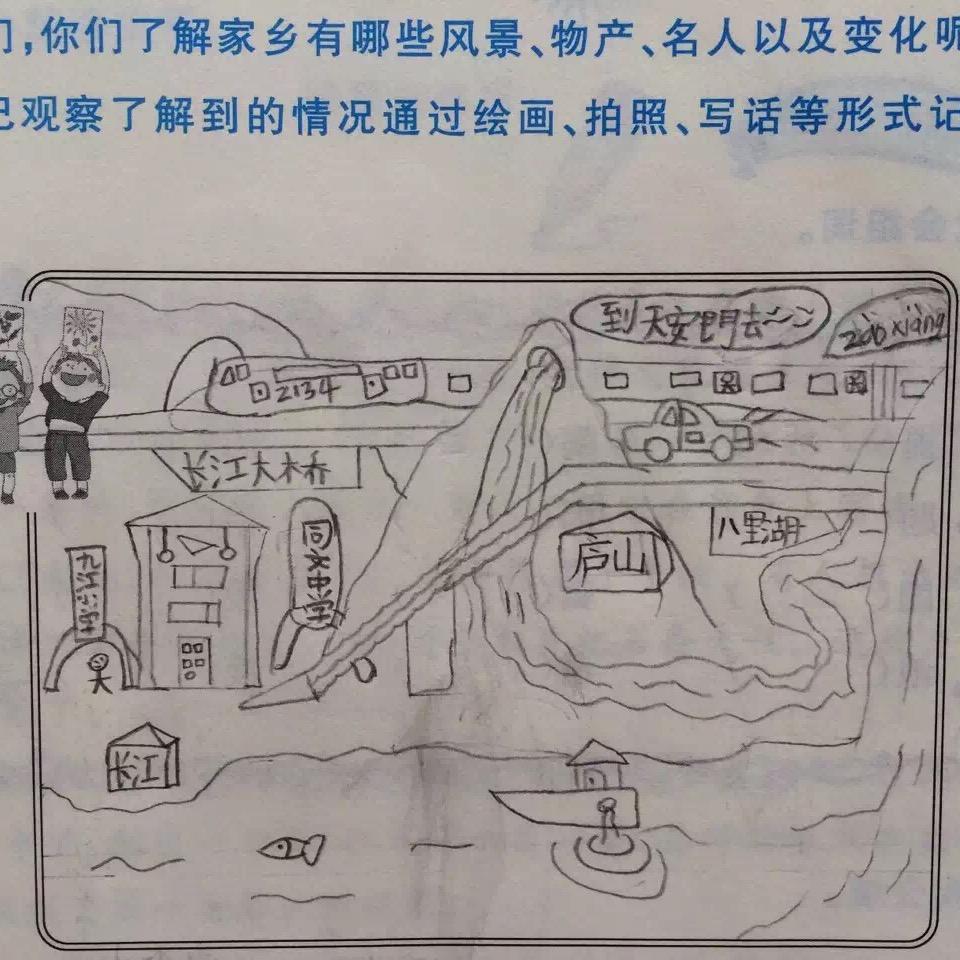 们,你们了解家乡有哪些风景、物产、名人以及变化呢
己观察了解到的情况通过绘画、拍照、写话等形式记
到天安门去~~
xiàng
2134
长江大桥
同文中学
八里湖
庐山
九江
长江